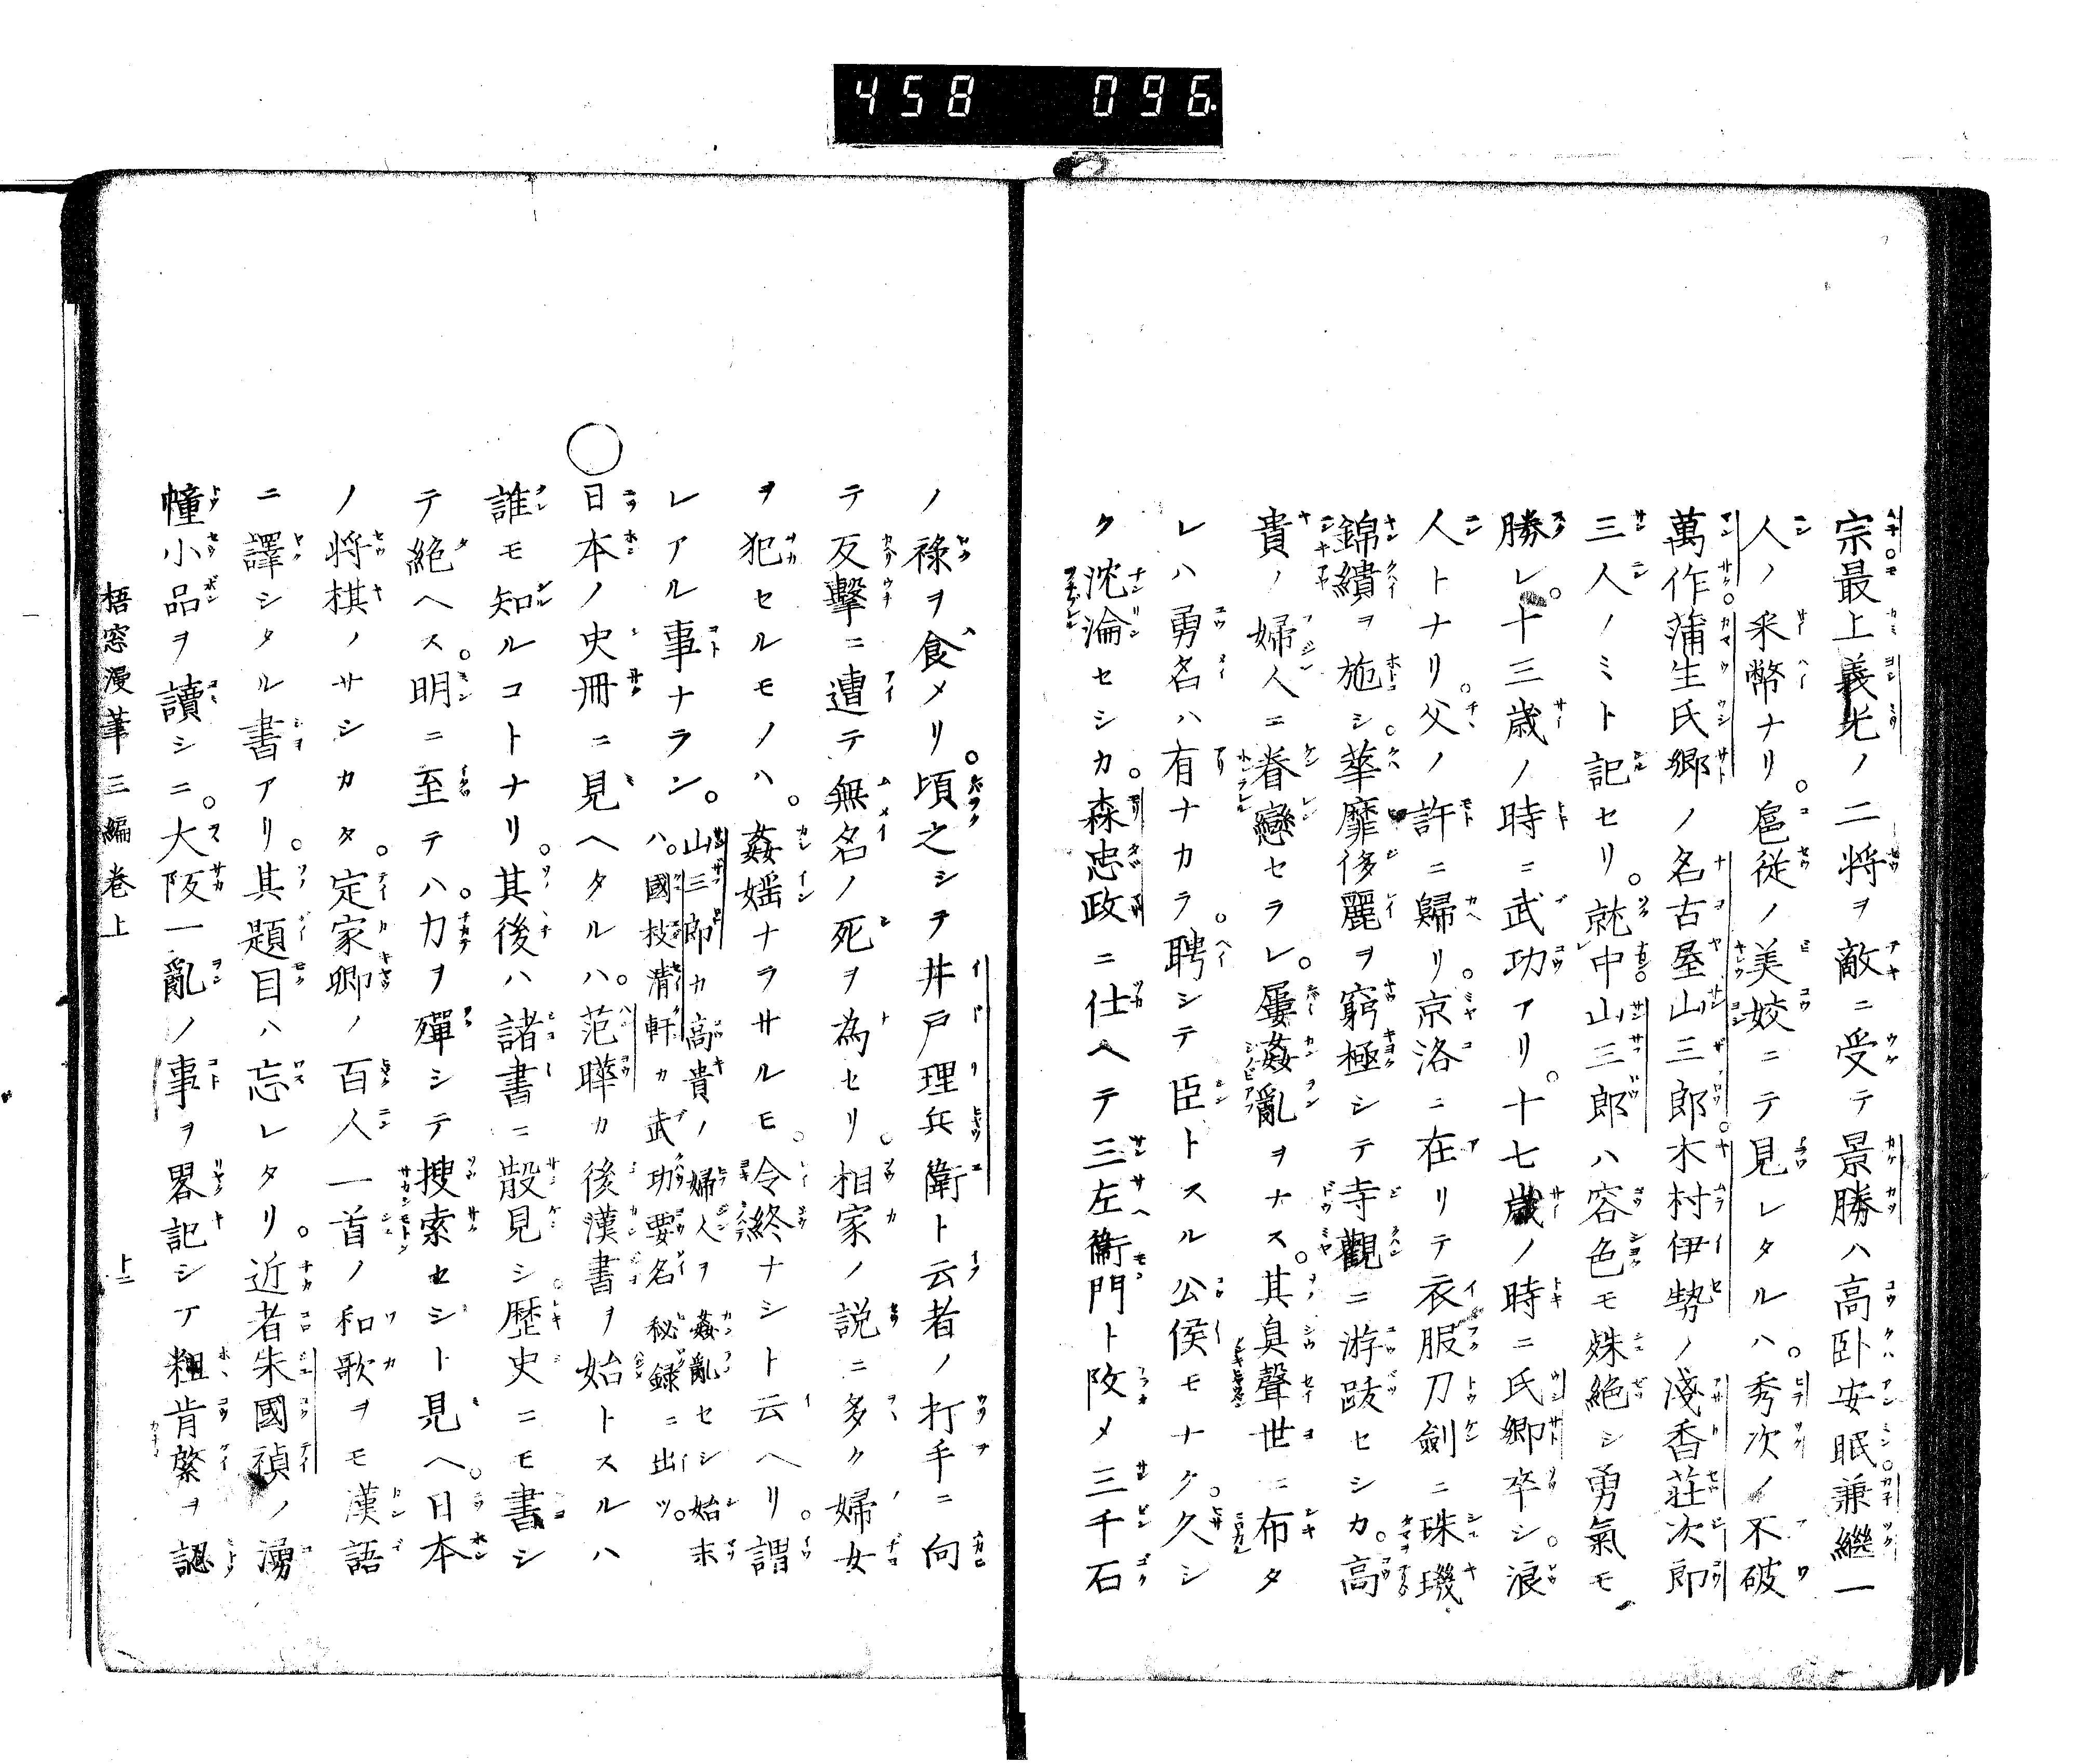 458 096
宗最上義光ノ二将ヲ敵ニ受テ景勝ハ高臥安眠兼繼一
人ノ釆幣ナリ。扈従ノ美姣ニテ見レタルハ。秀次ノ不破
萬作。蒲生氏郷ノ名古屋山三郎。木村伊勢ノ淺香荘次郎
三人ノミト記セリ。就中山三郎ハ容色モ姝絶シ勇氣モ
勝レ。十三歳ノ時ニ武功アリ。十七歳ノ時ニ氏郷卒シ。浪
人トナリ。父ノ許ニ歸リ。京洛ニ在リテ衣服刀劍ニ珠璣
錦繢ヲ施シ。華靡侈麗ヲ窮極シテ寺觀ニ游跋セシカ。高
貴ノ婦人ニ眷戀セラレ。屢姦亂ヲナス。其臭聲世ニ布タ
レハ勇名ハ有ナカラ。聘シテ臣トスル公侯モナク。久シ
ク沈淪セシカ。森忠政ニ仕ヘテ三左衞門ト改メ三千石
ノ祿ヲ食メリ。頃之シテ井戸理兵衛ト云者ノ打手ニ向
テ反擊ニ遭テ無名ノ死ヲ為セリ。相家ノ説ニ多ク婦女
ヲ犯セルモノハ。姦婬ナラサルモ。令終ナシト云ヘリ。謂
レアル事ナラン。山三郎カ高貴ノ婦人ヲ姦亂セシ始末
ハ。國枝清軒カ武功要名秘録ニ出ツ。
○日本ノ史冊ニ見ヘタルハ。范曄カ後漢書ヲ始トスルハ
誰モ知ルコトナリ。其後ハ諸書ニ散見シ。歴史ニモ書シ
テ絶ヘス。明ニ至テハ。力ヲ殫シテ搜索セシト見ヘ。日本
ノ将棋ノサシカタ。定家卿ノ百人一首ノ和歌ヲモ漢語
ニ譯シタル書アリ。其題目ハ忘レタリ。近者朱國禎ノ湧
幢小品ヲ讀シニ。大阪一亂ノ事ヲ畧記シテ粗肯綮ヲ認
梧窓漫筆三編巻上
上二